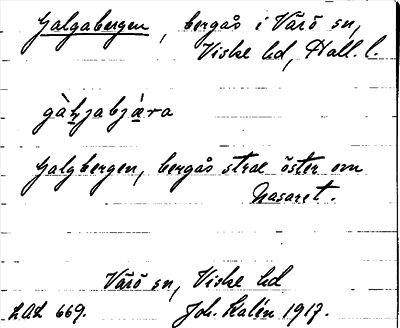 Galgabergen, bergås i Värö sn,
Viske hd, Hall. l.
gàḻjabjæ̀ra
Galgbergen, bergås strax öster om
Nasaret.
Värö sn, Viske hd
LAL 669. Joh. Kalén 1917.